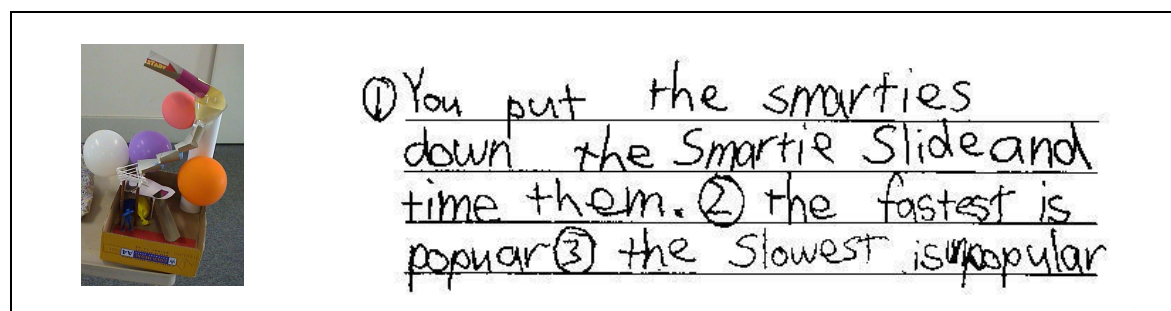 START
① You put the smarties
down the Smartie Slide and
time them. ② the fastest is
popuar ③ the Slowest is unpopular